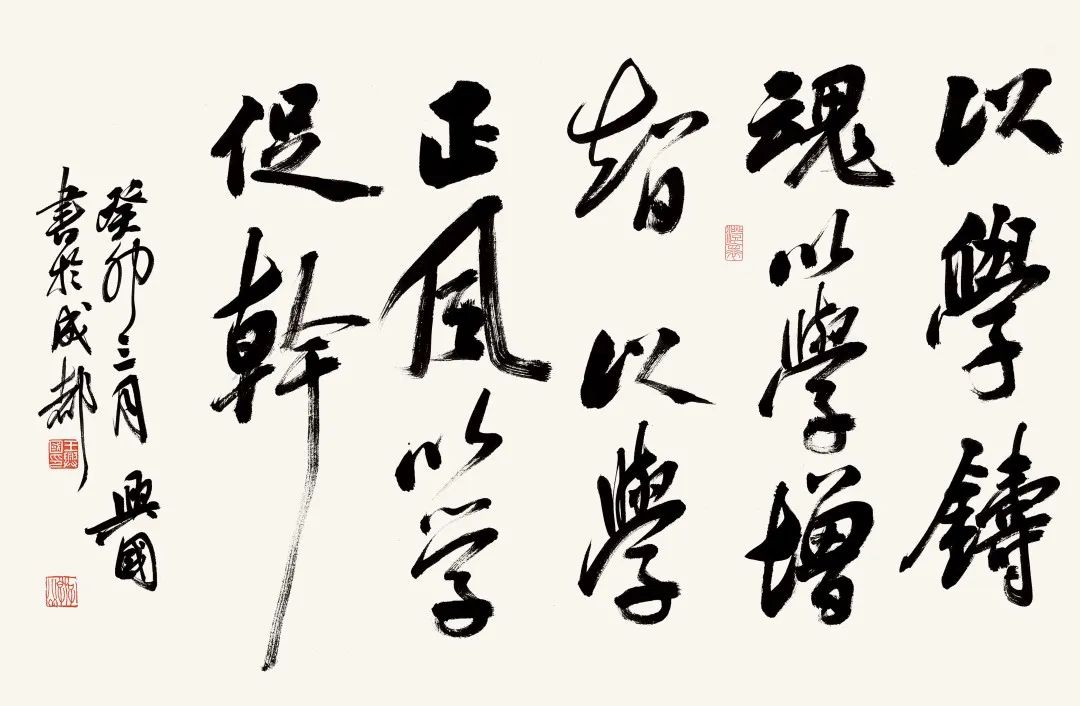 以學鑄
魂以學增
智以學
正风以学
促幹
癸卯三月興國
書於成都